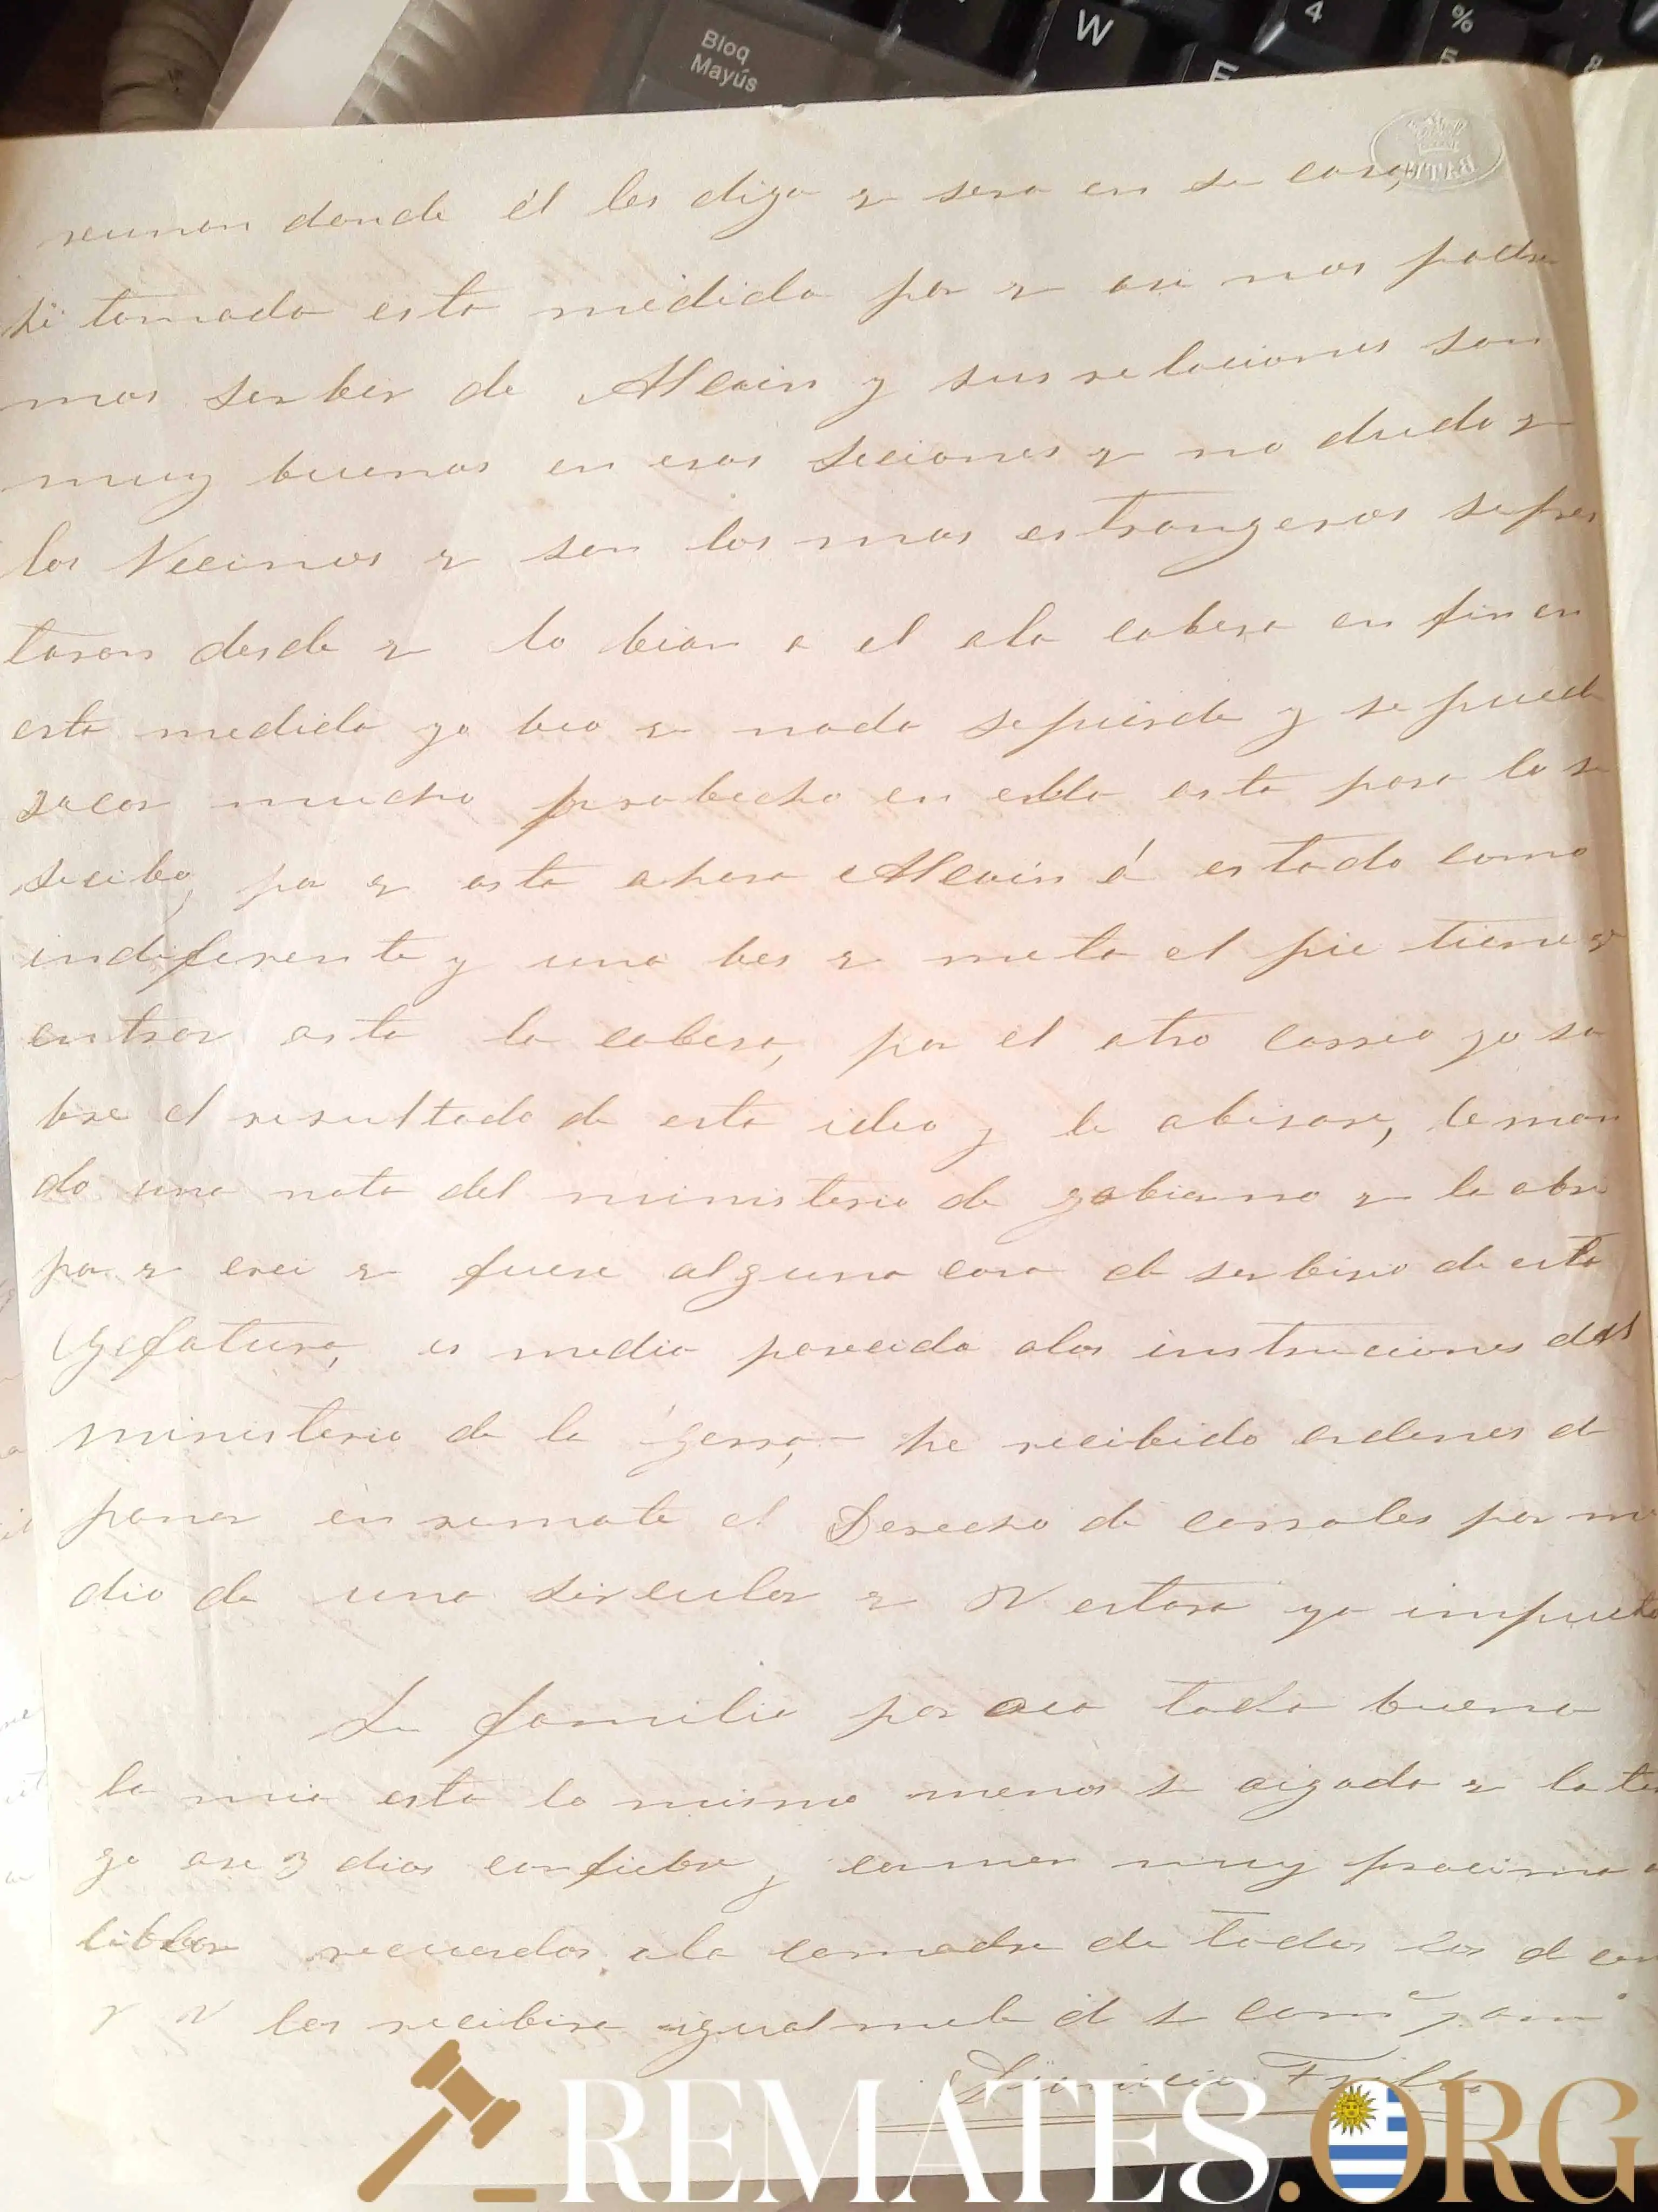 Bloq
Mayús
W
E
4
%
5
BATH
reunan donde él les diga q sera en su casa,
hè tomado esta medida por q asi nos podre
mos serbir de Alcain y sus relaciones son
muy buenas en esas seciones q no dudo q
los Vecinos q son los mas estrangeros se pres
taran desde q lo bian a el ala cabesa en fin en
esta medida yo beo q nada se pierde y se puede
sacar mucho probecho en ella asta para lo su
secibo, por q asta ahora Alcain á estado como
indiferente y una bes q meta el pie tiene q
entrar asta la cabesa, por el otro correo ya sa
bre el resultado de esta idea y le abisare, le man
do una nota del ministerio de gobierno q la abri
por q crei q fuese alguna cosa de serbisio de esta
Gefatura, es medio paresida alas instruciones del
ministerio de la gerra, he recibido ordenes de
poner en remate el Derecho de corrales por me
dio de una sircular q V estara ya impuesto
Su familia por aca toda buena
la mia esta lo mismo menos su aigada q la ten
go ase 3 dias con fiebre y carmen muy procsima a
librar recuerdos ala comadre de todos los de
q V los recibira igualmente de su com.e y am.o
REMATES.ORG